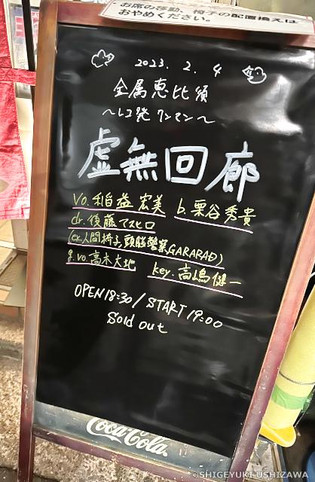 お席の移動、椅子の配置換えは
おやめください。
2023. 2. 4
金属恵比須
〜レコ発ワンマン〜
虚無回廊
Vo. 稲益宏美 b. 栗谷秀貴
dr. 後藤マスヒロ
(ex.人間椅子, 頭脳警察, GARARAD)
g.vo. 高木大地 key. 高嶋健一
OPEN 18:30 / START 19:00
Sold out
Coca-Cola
©SHIGEYUKI USHIZAWA